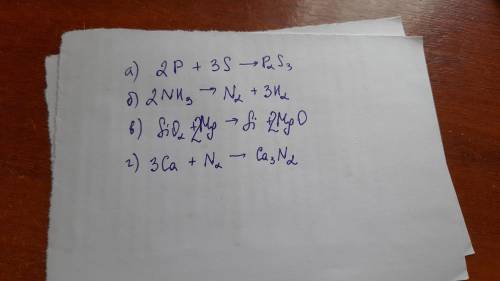 а) 2P + 3S → P₂S₃
б) 2NH₃ → N₂ + 3H₂
в) SiO₂ + 2Mg → Si + 2MgO
г) 3Ca + N₂ → Ca₃N₂